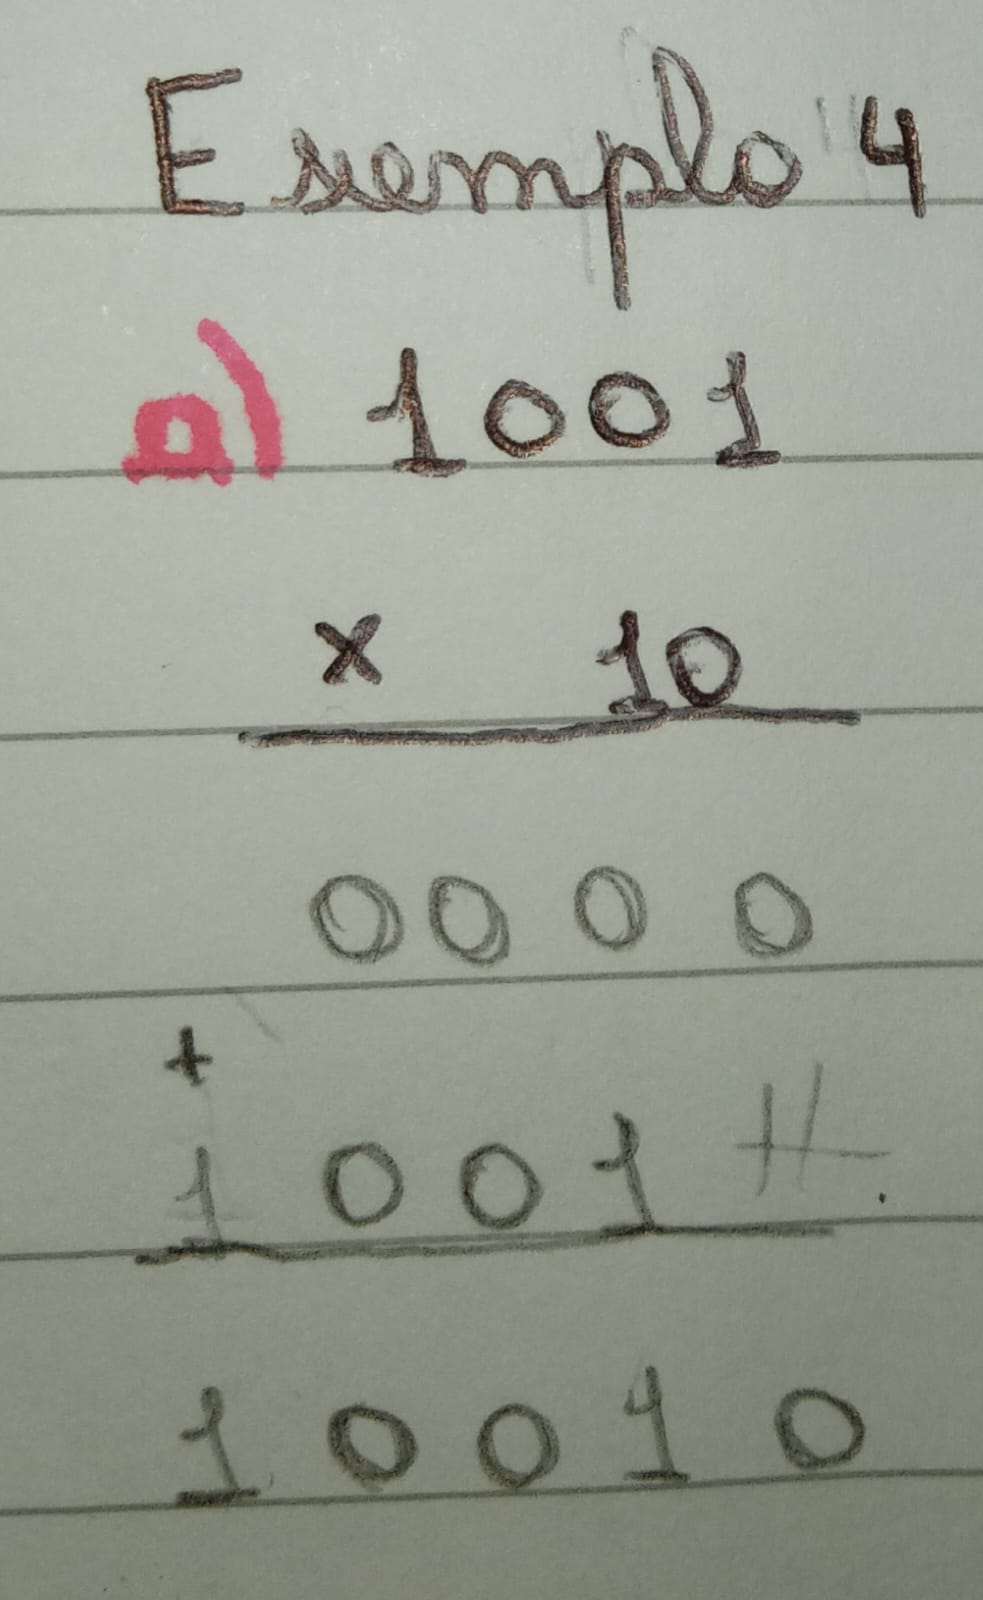 Exemplo 4
a) 1001
x 10
0000
+
1001 #
10010